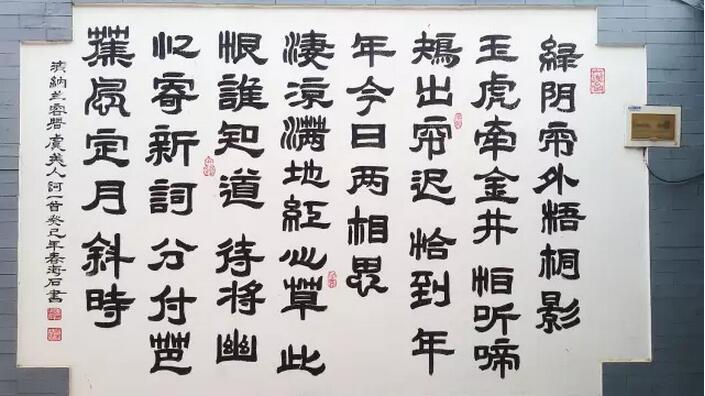 緑阴帘外梧桐影
玉虎牵金井 怕听啼
鴂出帘迟 恰到年
年今日两相思
淒涼满地紅心草 此
恨誰知道 待将幽
心寄新詞 分付芭
蕉風定月斜時
清納兰容若虞美人詞一首癸巳年春海石書